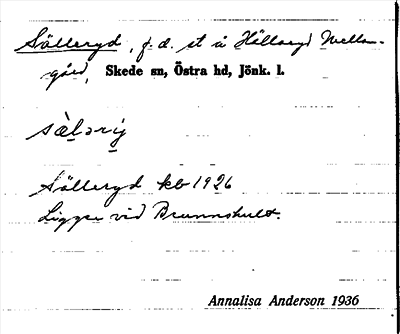 Sälleryd, f.d. st å Hälleryd Mellan-
gård, Skede sn, Östra hd, Jönk. l.
sàləri̱g
Sälleryd kb 1926
Ligger vid Brunnshult.
Annalisa Anderson 1936